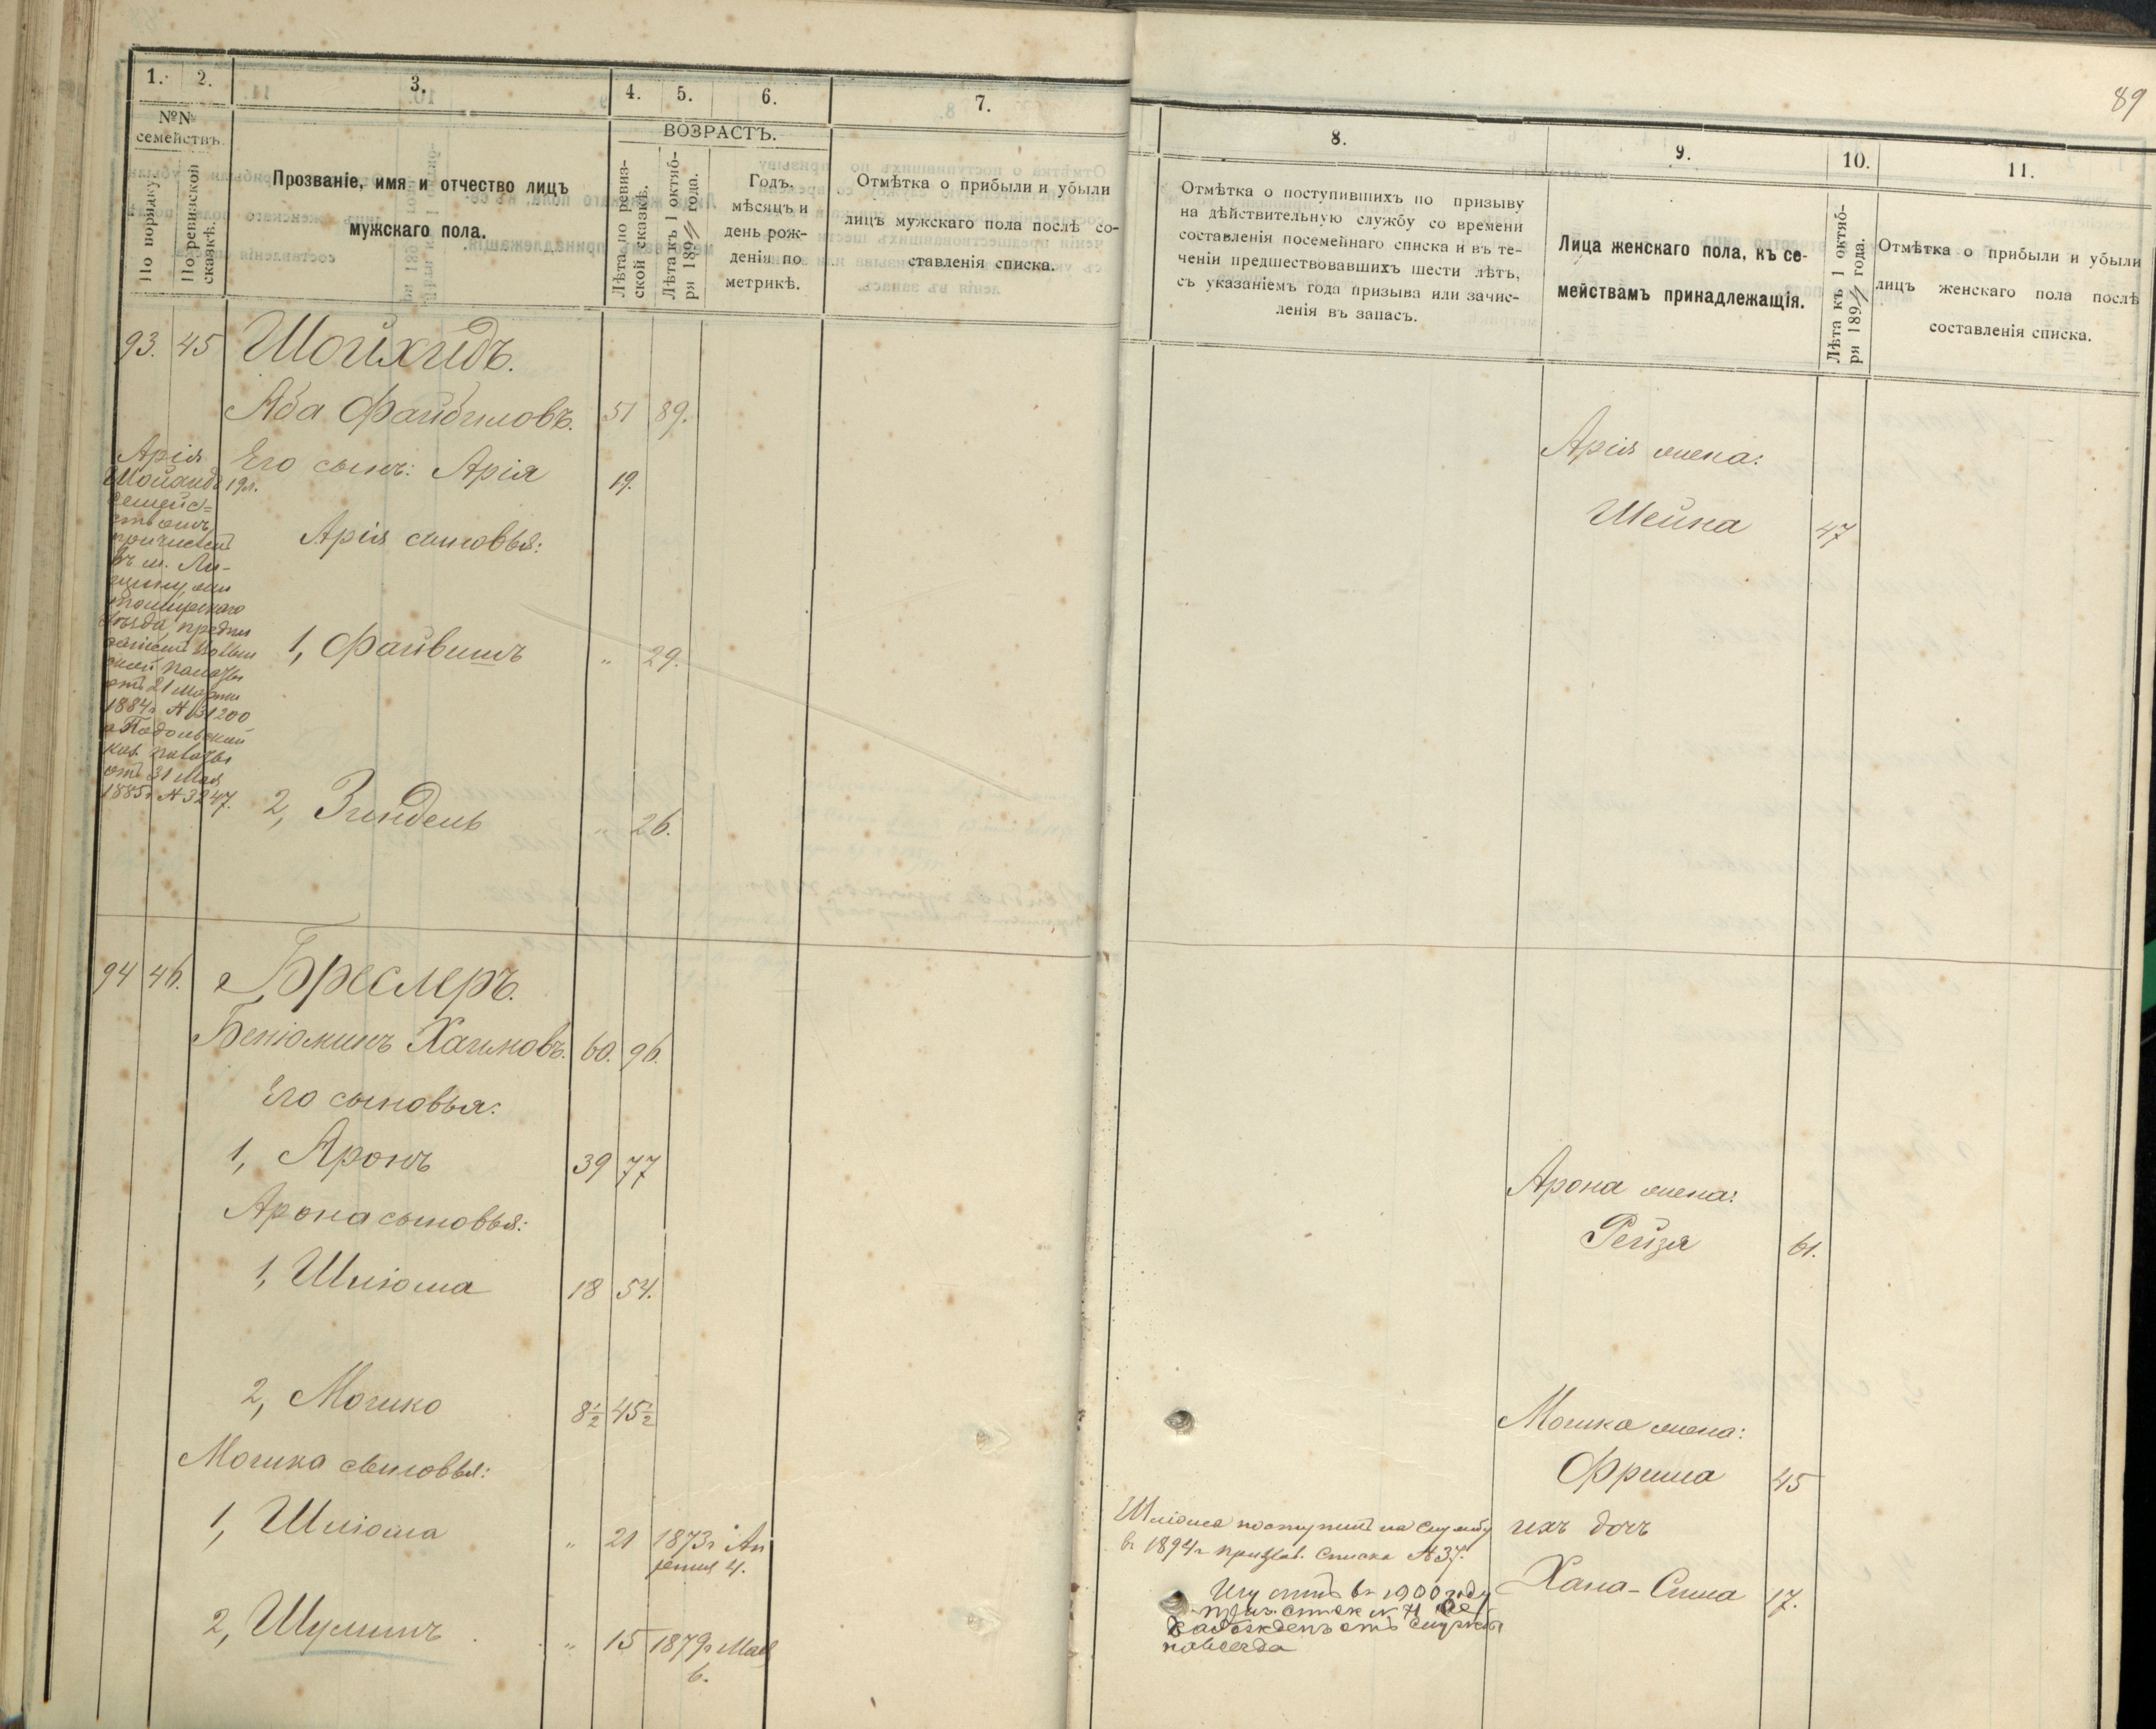 89
1. 2. 3. 4. 5. 6. 7.
№№ семействъ.
По порядку.
По ревизской сказкѣ.
Прозваніе, имя и отчество лицъ
мужскаго пола.
ВОЗРАСТЪ.
Лѣта по ревиз-
ской сказкѣ.
Лѣта къ 1 октяб-
ря 1894 года.
Годъ,
мѣсяцъ и
день рож-
денія по
метрикѣ.
Отмѣтка о прибыли и убыли
лицъ мужскаго пола послѣ со-
ставленія списка.
8. 9. 10. 11.
Отмѣтка о поступившихъ по призыву
на дѣйствительную службу со времени
составленія посемейнаго списка и въ те-
ченіи предшествовавшихъ шести лѣтъ,
съ указаніемъ года призыва или зачис-
ленія въ запасъ.
Лица женскаго пола, къ се-
мействамъ принадлежащія.
Лѣта къ 1 октяб-
ря 1894 года.
Отмѣтка о прибыли и убыли
лицъ женскаго пола послѣ
составленія списка.
93. 45 Шойхидъ.
Аба Файбиловъ. 51 89.
Его сынъ: Арія 19.
Арія
Шойхидъ 19л.
семейс=
твомъ
причисленъ
въ м.
уѣзда,
отъ 21 Марта
1884г №
Подольской
каз. палаты
отъ 31 Мая
1885г № 3247.
Арія сыновья:
1, Файвишъ " 29.
2, Зиндель " 26.
Арія жена:
Шейна 47
94 46. Бреслеръ.
Беніоминъ Хаимовъ. 60. 96.
Его сыновья:
1, Аронъ 39 77
Арона сыновья:
1, Шліома 18 54.
2, Мошко 8½ 45½
Мошка сыновья:
1, Шліома " 21 1873г Ап
реля 4.
2, Шулимъ " 15 1879г Мая
6.
Арона жена:
Рейзя 61.
Мошка жена:
Фрима 45
ихъ дочь
Хана-Сима 17.
Шліома поступилъ на службу
въ 1894г призыв. списка № 37.
въ 1900 году
отъ службы
навсегда